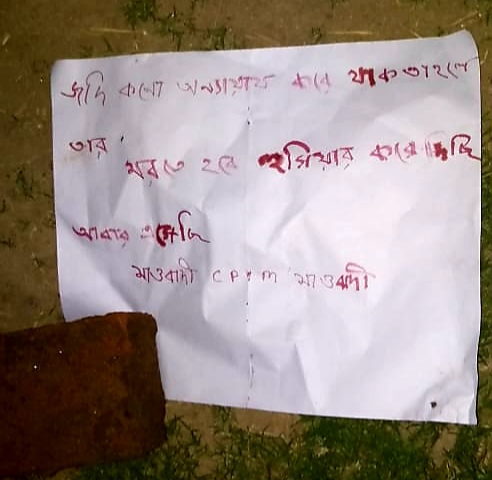 জদি কনো অন্যায়ায় করে থাক তাহলে
তার
মরতে হবে হুসিয়ার করেদিছি
আবার এসেছি
মাওবাদী CPIM মাওবাদী